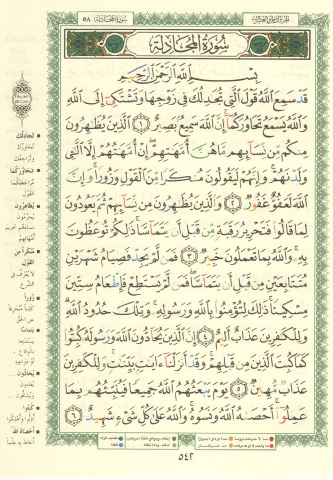 الجزء الثامن والعشرون
سورة المجادلة ٥٨
سُورَةُ المُجَادِلَةِ
بِسْمِ اللَّهِ الرَّحْمَٰنِ الرَّحِيمِ
قَدْ سَمِعَ اللَّهُ قَوْلَ الَّتِي تُجَادِلُكَ فِي زَوْجِهَا وَتَشْتَكِي إِلَى اللَّهِ
وَاللَّهُ يَسْمَعُ تَحَاوُرَكُمَا إِنَّ اللَّهَ سَمِيعٌ بَصِيرٌ ١ الَّذِينَ يُظَاهِرُونَ
مِنكُم مِّن نِّسَائِهِم مَّا هُنَّ أُمَّهَاتِهِمْ إِنْ أُمَّهَاتُهُمْ إِلَّا الَّتِي
وَلَدْنَهُمْ وَإِنَّهُمْ لَيَقُولُونَ مُنكَرًا مِّنَ الْقَوْلِ وَزُورًا وَإِنَّ
اللَّهَ لَعَفُوٌّ غَفُورٌ ٢ وَالَّذِينَ يُظَاهِرُونَ مِن نِّسَائِهِمْ ثُمَّ يَعُودُونَ
لِمَا قَالُوا فَتَحْرِيرُ رَقَبَةٍ مِّن قَبْلِ أَن يَتَمَاسَّا ذَٰلِكُمْ تُوعَظُونَ
بِهِ وَاللَّهُ بِمَا تَعْمَلُونَ خَبِيرٌ ٣ فَمَن لَّمْ يَجِدْ فَصِيَامُ شَهْرَيْنِ
مُتَتَابِعَيْنِ مِن قَبْلِ أَن يَتَمَاسَّا فَمَن لَّمْ يَسْتَطِعْ فَإِطْعَامُ سِتِّينَ
مِسْكِينًا ذَٰلِكَ لِتُؤْمِنُوا بِاللَّهِ وَرَسُولِهِ وَتِلْكَ حُدُودُ اللَّهِ
وَلِلْكَافِرِينَ عَذَابٌ أَلِيمٌ ٤ إِنَّ الَّذِينَ يُحَادُّونَ اللَّهَ وَرَسُولَهُ كُبِتُوا
كَمَا كُبِتَ الَّذِينَ مِن قَبْلِهِمْ وَقَدْ أَنزَلْنَا آيَاتٍ بَيِّنَاتٍ وَلِلْكَافِرِينَ
عَذَابٌ مُّهِينٌ ٥ يَوْمَ يَبْعَثُهُمُ اللَّهُ جَمِيعًا فَيُنَبِّئُهُم بِمَا
عَمِلُوا أَحْصَاهُ اللَّهُ وَنَسُوهُ وَاللَّهُ عَلَىٰ كُلِّ شَيْءٍ شَهِيدٌ ٦
تُجادلك
تحاوركما
يُظاهرون
منكراً من القول
زوراً
يتماسا
يُحادّون
كُبتوا
أحصاه الله
٥٤٢